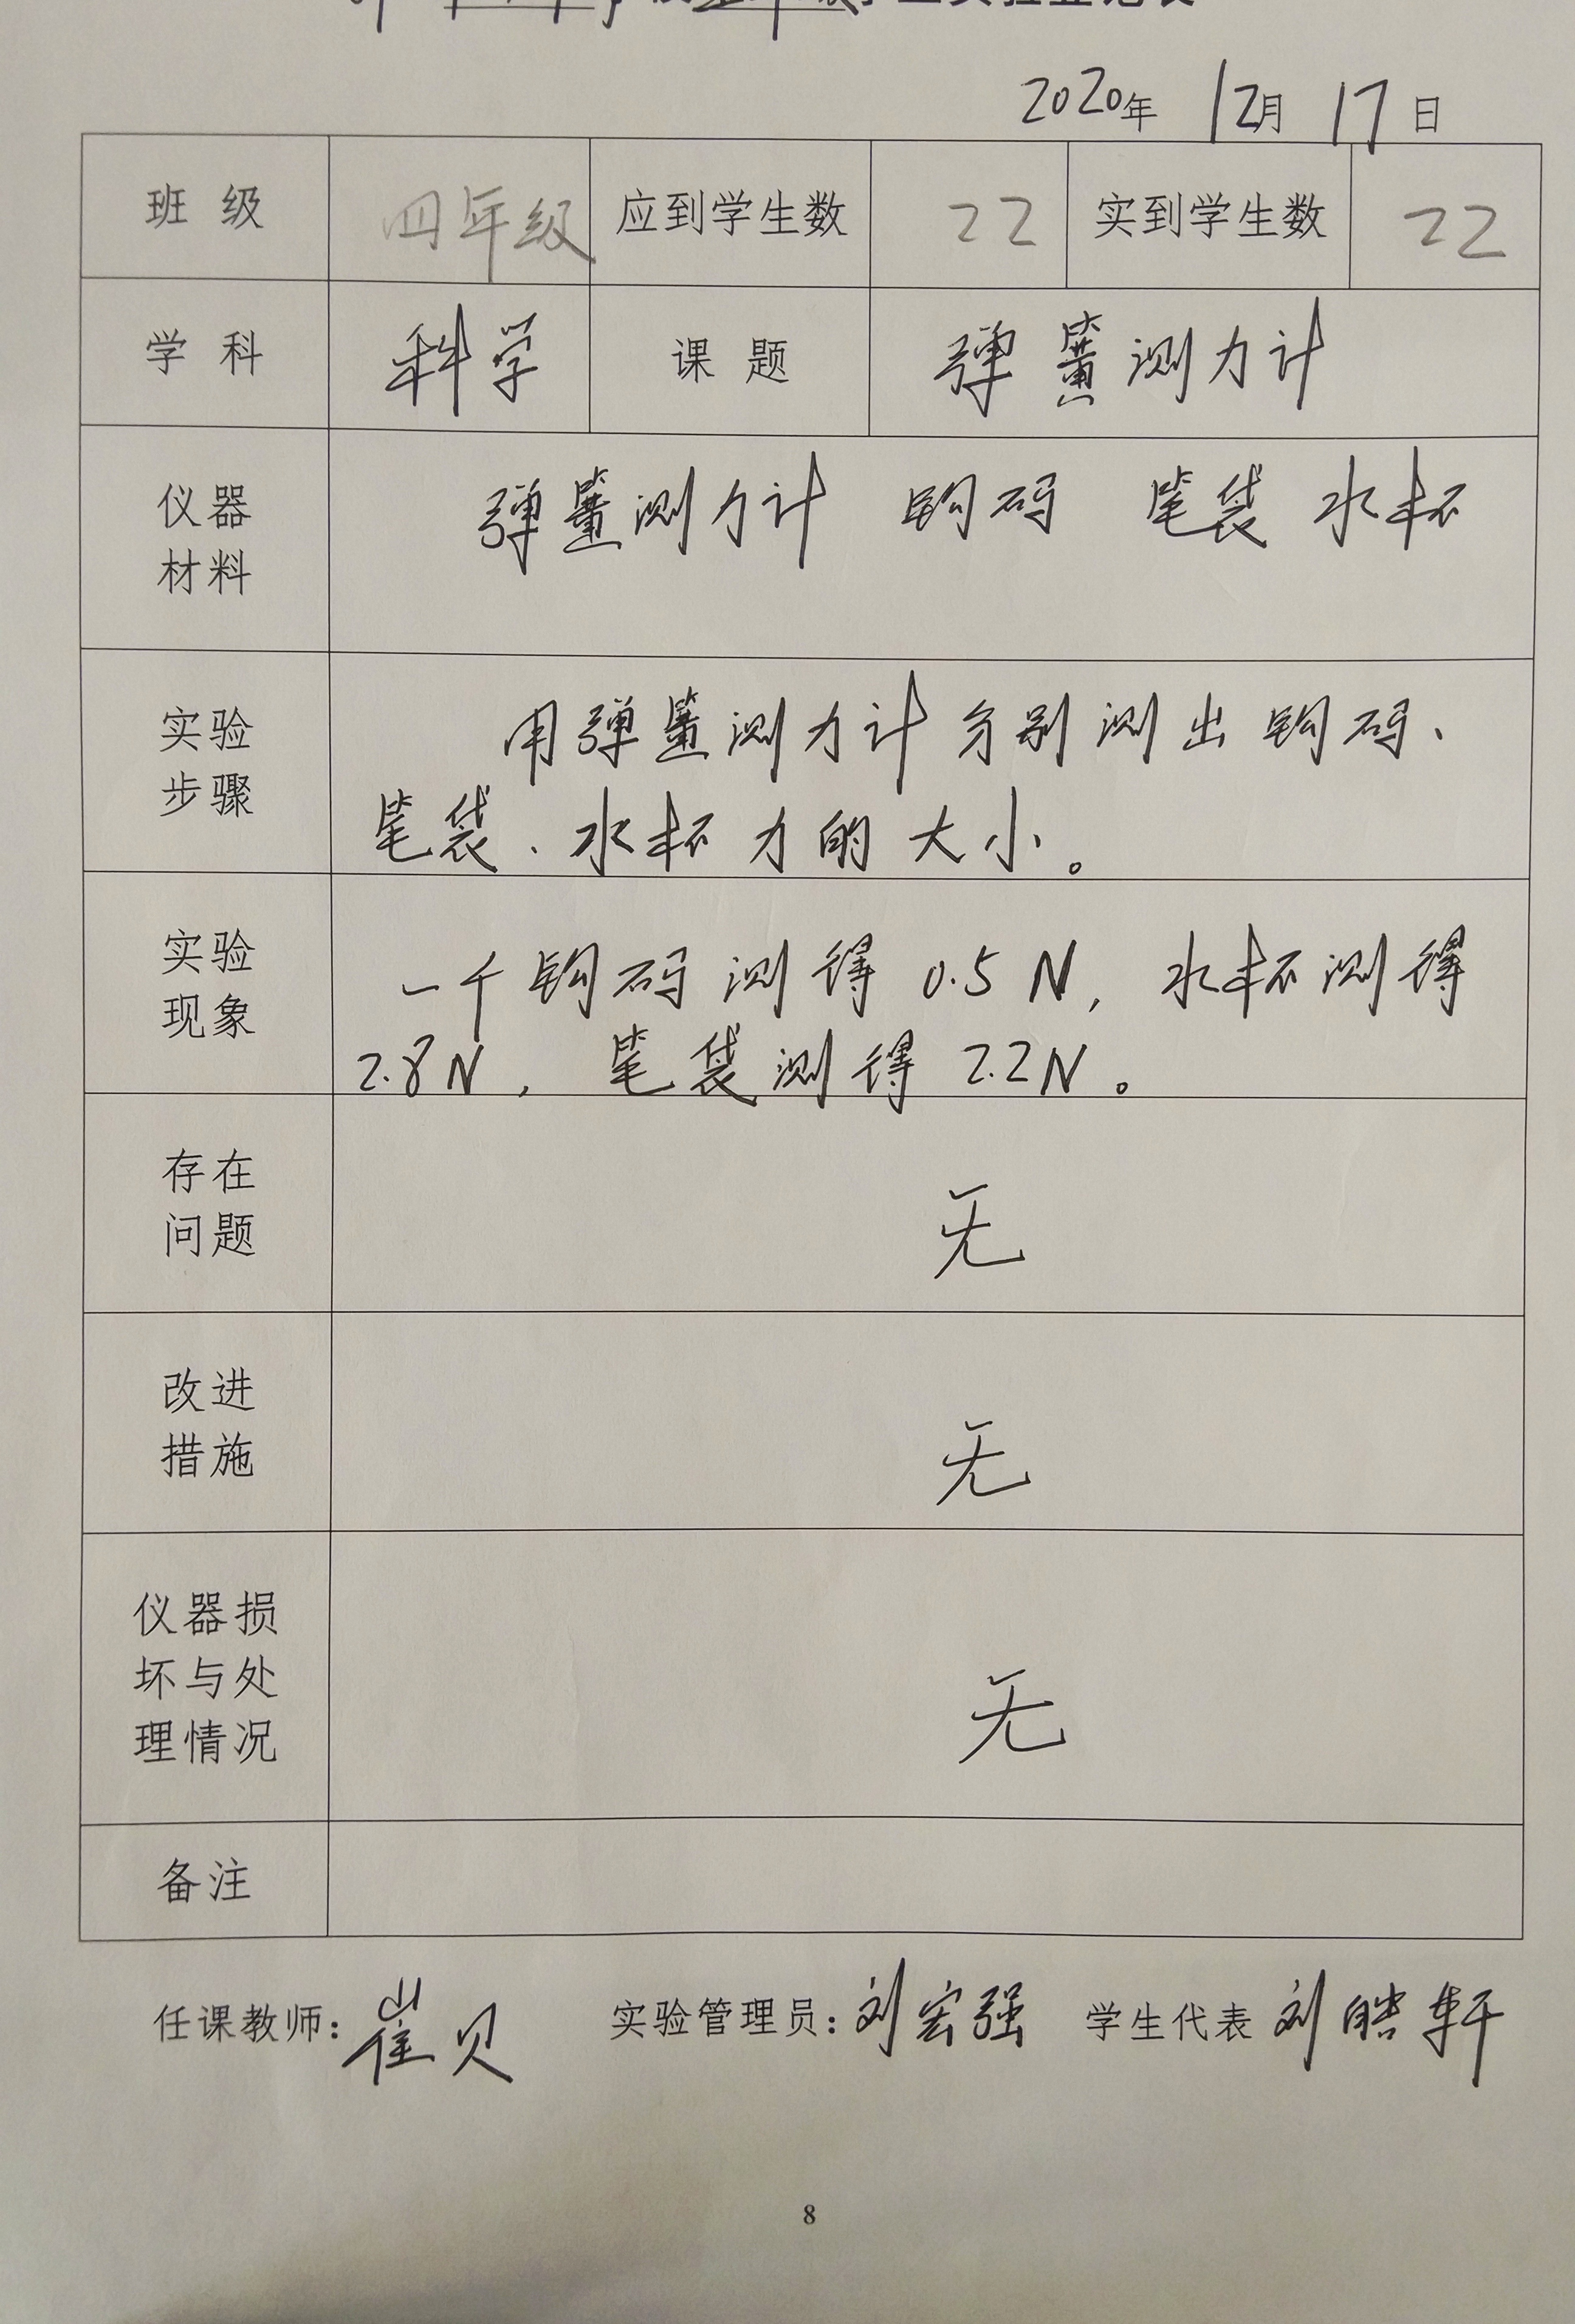 2020年 12月 17日
班 级 四年级 应到学生数 22 实到学生数 22
学 科 科学 课 题 弹簧测力计
仪器
材料
弹簧测力计 钩码 笔袋 水杯
实验
步骤
用弹簧测力计分别测出钩码、
笔袋、水杯力的大小。
实验
现象
一个钩码测得0.5N,水杯测得
2.8N,笔袋测得2.2N。
存在
问题
无
改进
措施
无
仪器损
坏与处
理情况
无
备注
任课教师:崔贝 实验管理员:刘宏强 学生代表 刘皓轩
8